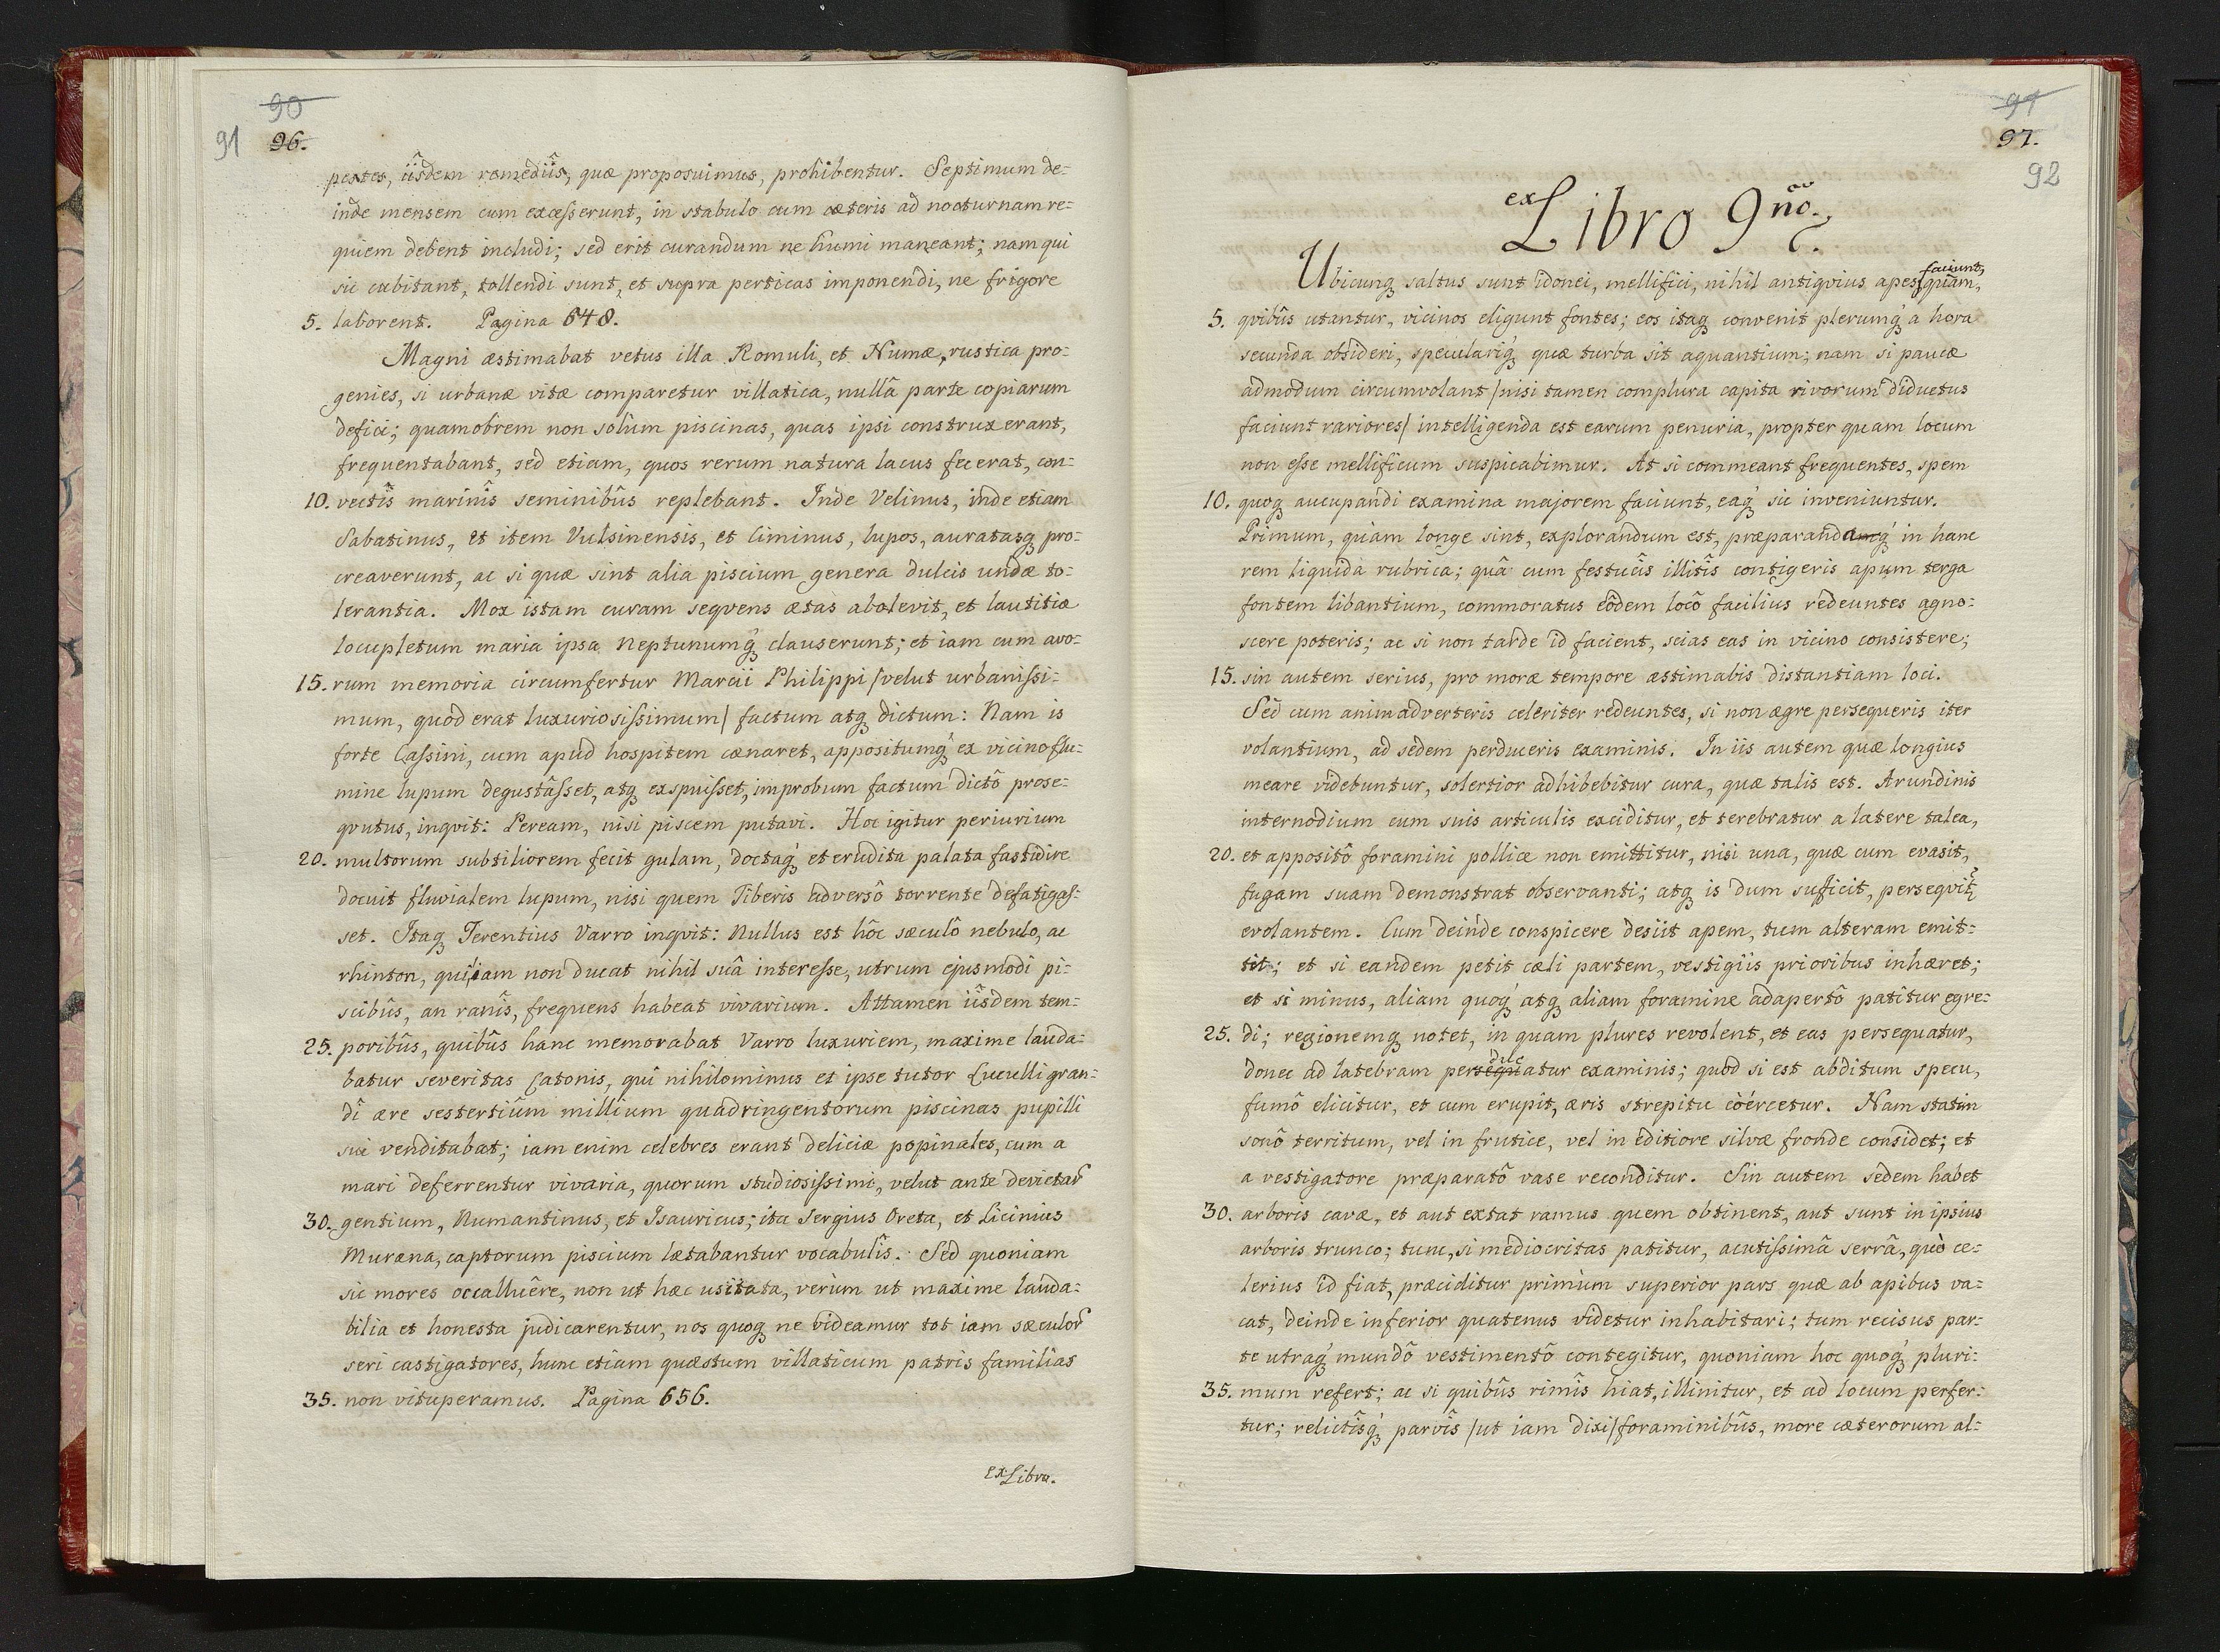 90
91 96.
pestes, iîsdem remediîs, quæ proposuimus, prohibentur. Septimum de=
inde mensem cum excesserunt, in stabulo cum cæteris ad nocturnam re=
quiem debent includi; sed erit curandum ne humi maneant; nam qui
sic cubitant, tollendi sunt, et supra perticas imponendi, ne frigore
5. laborent. Pagina 648.
Magni æstimabat vetus illa Romuli, et Numæ, rustica pro=
genies, si urbanæ vitæ comparetur villatica, nullâ parte copiarum
defici; quamobrem non solùm piscinas, quas ipsi construxerant,
frequentabant, sed etiam, quos rerum natura lacus fecerat, con=
10. vectîs marinîs seminibûs replebant. Inde Velinus, inde etiam
Sabatinus, et item Vulsinensis, et Ciminus, lupos, auratasq́ pro=
creaverunt, ac si quæ sint alia piscium genera dulcis undæ to=
lerantia. Mox istam curam seqvens ætas abolevit, et lautitiæ
locupletum maria ipsa Neptunumq́ clauserunt; et iam cum avo=
15. rum memoria circumfertur Marcii Philippi /velut urbanissi=
mum, quod erat luxuriosissimum/ factum atq dictum: Nam is
forte Cassini, cum apud hospitem cænaret, appositumq́ ex vicino flu=
mine lupum degustâsset, atq exspuisset, improbum factum dictô prose=
qvutus, inqvit: Peream, nisi piscem putavi. Hoc igitur periurium
20. multorum subtiliorem fecit gulam, doctaq́ et erudita palata fastidire
docuit fluvialem lupum, nisi quem Tiberis adversô torrente defatigas=
set. Itaq Terentius Varro inqvit: Nullus est hôc sæculô nebulo, ac
rhinton, qui iam non ducat nihil suâ interesse, utrum ejusmodi pi=
scibûs, an ranîs, frequens habeat vivarium. Attamen iîsdem tem=
25. poribûs, quibûs hanc memorabat Varro luxuriem, maxime lauda=
batur severitas Catonis, qui nihilominus et ipse tutor Luculli gran=
dî ære sestertiûm millium quadringentorum piscinas pupilli
sui venditabat; iam enim celebres erant deliciæ popinales, cum a
mari deferrentur vivaria, quorum studiosissimi, velut ante devictaȓ
30. gentium, Numantinus, et Isauricus; ita Sergius Oreta, et Licinius
Muræna, captorum piscium lætabantur vocabulîs. Sed quoniam
sic mores occalluêre, non ut hæc usitata, verùm ut maxime lauda=
bilia et honesta judicarentur, nos quoq ne videamur tot iam sæculoȓ
seri castigatores, hunc etiam quæstum villaticum patris familias
35. non vituperamus. Pagina 656.
ex Libro.
91
97.
92
ex Libro 9no.
Ubicunq saltus sunt idonei, mellifici, nihil antiqvius apes faciunt, quàm,
5. qvibûs utantur, vicinos eligunt fontes; eos itaq convenit plerumq́ a hora
secunda obsideri, speculariq́ quæ turba sit aquantium; nam si paucæ
admodum circumvolant /nisi tamen complura capita rivorum diductus
faciunt rariores/ intelligenda est earum penuria, propter quam locum
non esse mellificum suspicabimur. At si commeant frequentes, spem
10. quoq aucupandi examina majorem faciunt, eaq́ sic inveniuntur.
Primum, quàm longe sint, explorandum est, præparandaq́ in hanc
rem liquida rubrica; quâ cum festucîs illitîs contigeris apum terga
fontem libantium, commoratus eôdem locô facilius redeuntes agno=
scere poteris; ac si non tarde id facient, scias eas in vicino consistere;
15. sin autem serius, pro moræ tempore æstimabis distantiam loci.
Sed cum animadverteris celeriter redeuntes, si non ægre persequeris iter
volantium, ad sedem perduceris examinis. In iis autem quæ longius
meare videbuntur, solertior adhibebitur cura, quæ talis est. Arundinis
internodium cum suis articulis exciditur, et terebratur a latere talea,
20. et appositô foramini pollice non emittitur, nisi una, quæ cum evasit,
fugam suam demonstrat observanti; atq is dum sufficit, perseqvit
evolantem. Cum deinde conspicere desiit apem, tum alteram emit=
tit; et si eandem petit cæli partem, vestigiis prioribus inhæret;
et si minus, aliam quoq́ atq aliam foramine adapertô patitur egre=
25. di; regionemq notet, in quam plures revolent, et eas persequatur,
donec ad latebram persequatur duc examinis; quod si est abditum specu,
fumô elicitur, et cum erupit, æris strepitu coërcetur. Nam statim
sonô territum, vel in frutice, vel in editiore silvæ fronde considet; et
a vestigatore præparatô vase reconditur. Sin autem sedem habet
30. arboris cavæ, et aut extat ramus quem obtinent, aut sunt in ipsius
arboris trunco; tunc, si mediocritas patitur, acutissimâ serrâ, quò ce=
lerius id fiat, præciditur primùm superior pars quæ ab apibus va=
cat, deinde inferior quatenus videtur inhabitari; tum recisus par=
te utraq́ mundô vestimentô contegitur, quoniam hoc quoq́ pluri=
35. mum refert; ac si quibûs rimîs hiat, illinitur, et ad locum perfer=
tur; relictîsq́ parvîs /ut iam dixi/ foraminibûs, more cæterorum al=